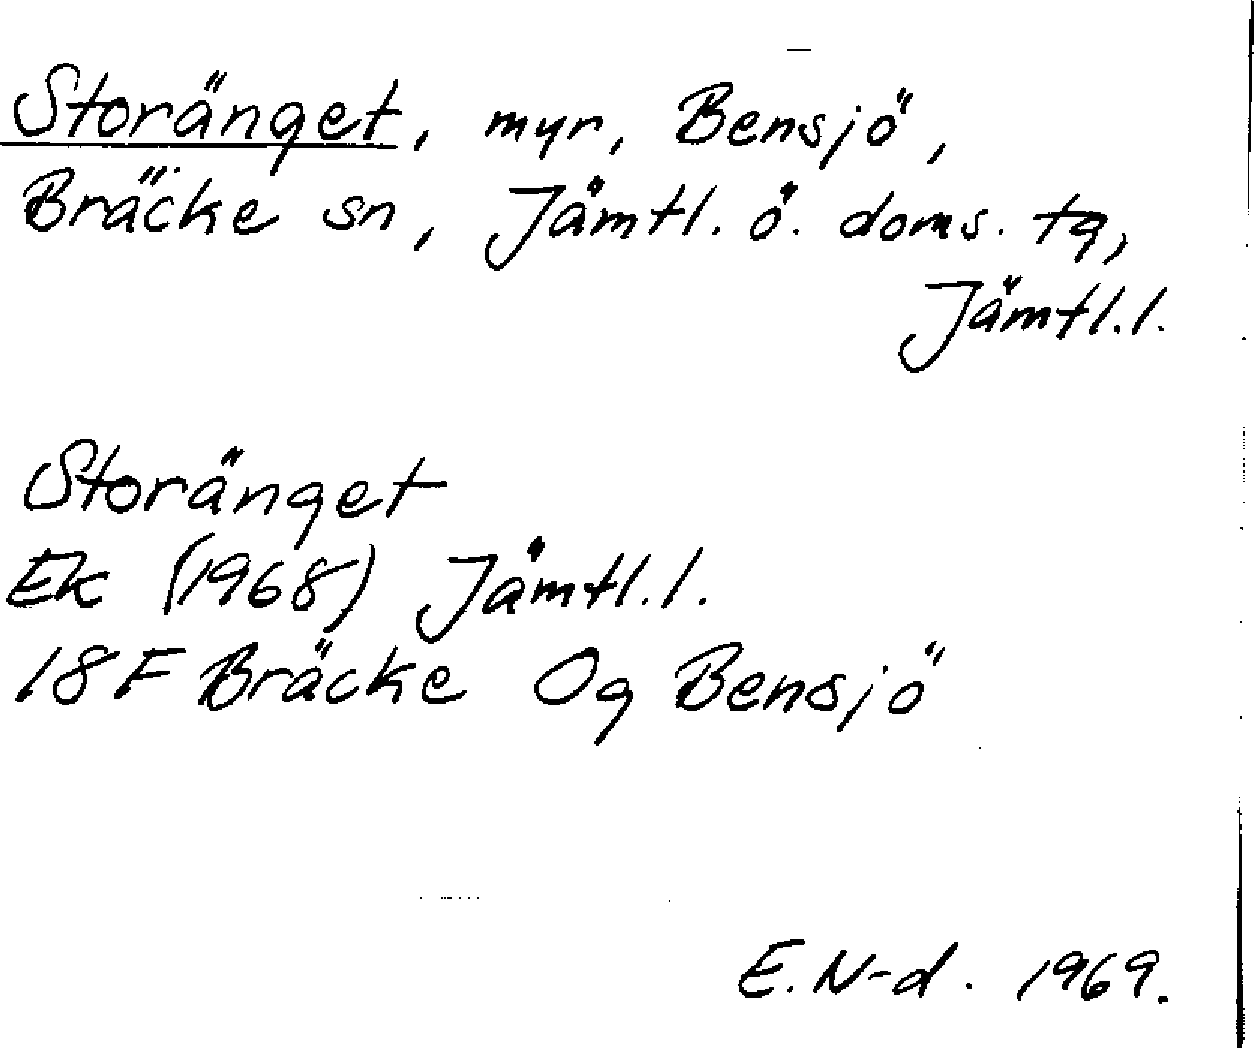 Storänget, myr, Bensjö,
Bräcke sn, Jämtl. ö. doms. tg,
Jämtl.l.
Storänget
Ek (1968) Jämtl.l.
18F Bräcke Og Bensjö
E.N-d. 1969.